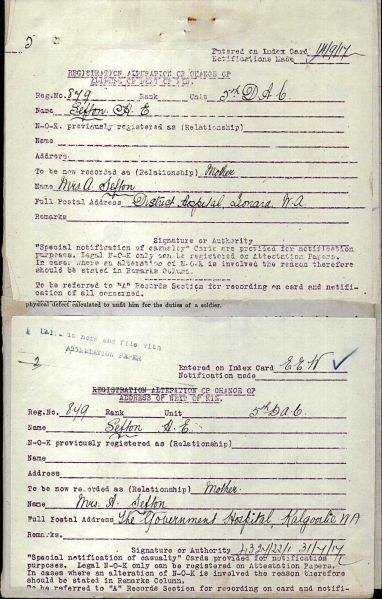 5
Entered on Index Card 14/9/17
Notifications Made
REGISTRATION ALTERATION OR CHANGE OF
ADDRESS OF NEXT OF KIN.
Reg.No. 849 Rank Unit 5th D A C.
Name Sefton A. E
N-O-K. previously registered as (Relationship)
Name
Address
To be now recorded as (Relationship) Mother
Name Mrs A. Sefton
Full Postal Address District Hospital, Leonora, W.A
Remarks
Signature or Authority
"Special notification of casualty" Cards are provided for notification
purposes. Legal N-O-K only can be registered on Attestation Papers.
In cases where an alteration of N-O-K is involved the reason therefore
should be stated in Remarks Column.
To be referred to "A" Records Section for recording on card and notifi-
cation of all concerned.
physical defect calculated to unfit him for the duties of a soldier.
in note and file with
ATTESTATION PAPER
2
Entered on Index Card E E W
Notification made
REGISTRATION ALTERATION OR CHANGE OF
ADDRESS OF NEXT OF KIN.
Reg.No. 849 Rank Unit 5th D a C.
Name Sefton A. E.
N-O-K previously registered as (Relationship)
Name
Address
To be now recorded as (Relationship) Mother
Name Mrs. A. Sefton
Full Postal Address The Government Hospital, Kalgoorlie WA
Remarks.
Signature or Authority 31/7/17
"Special notification of casualty" Cards provided for notification
purposes. Legal N-O-K only can be registered on Attestation Papers.
In cases where an alteration of N-O-K is involved the reason therefore
should be stated in Remarks Column.
To be referred to "A" Records Section for recording on card and notifi-